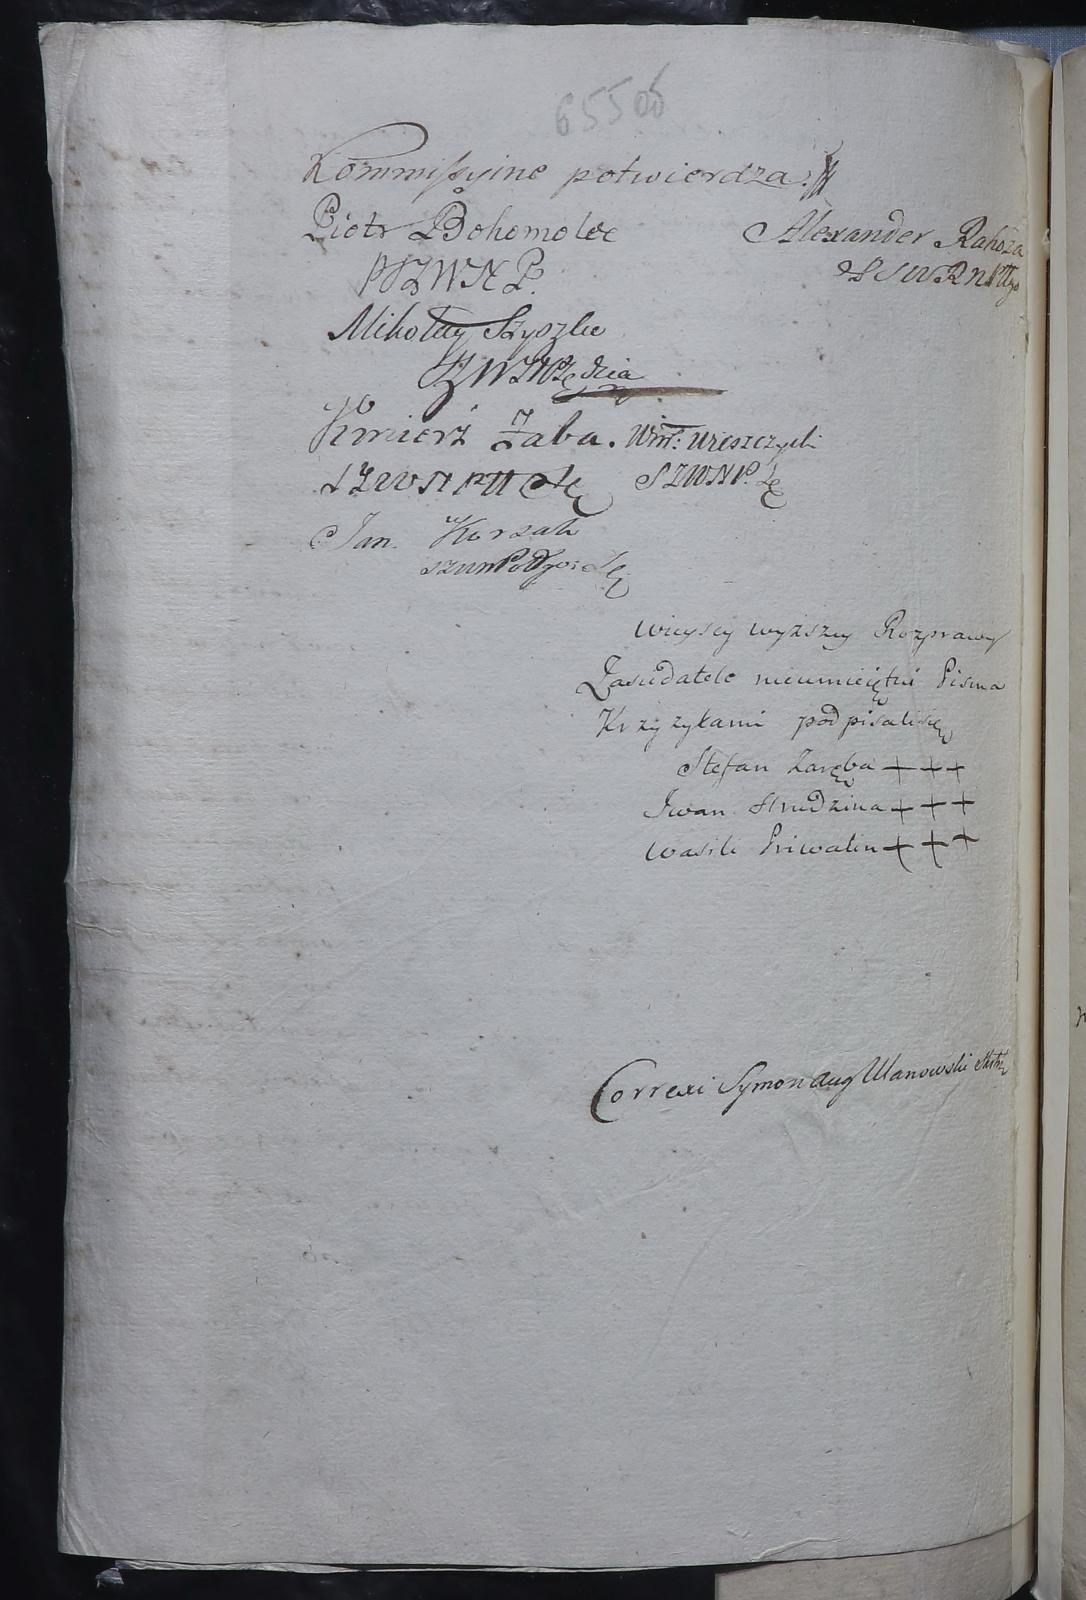 655об
Kommissyine potwierdza.
Piotr Bohomolec
PSZWNP.
Alexander Rahoza
Mikołay Szyszko
Kmierz Żaba. Winc: Wieszczycki
SZWNP. Sę
Jan Korsak
Wieyscy wyższey Rozprawy
Zasiadatele nieumieiętni Pisma
Krzyzykami podpisalisię
Stefan Zaręba + + +
Iwan Studzina + + +
Wasili Priwalin + + +
Correxi Symon Aug Ulanowski